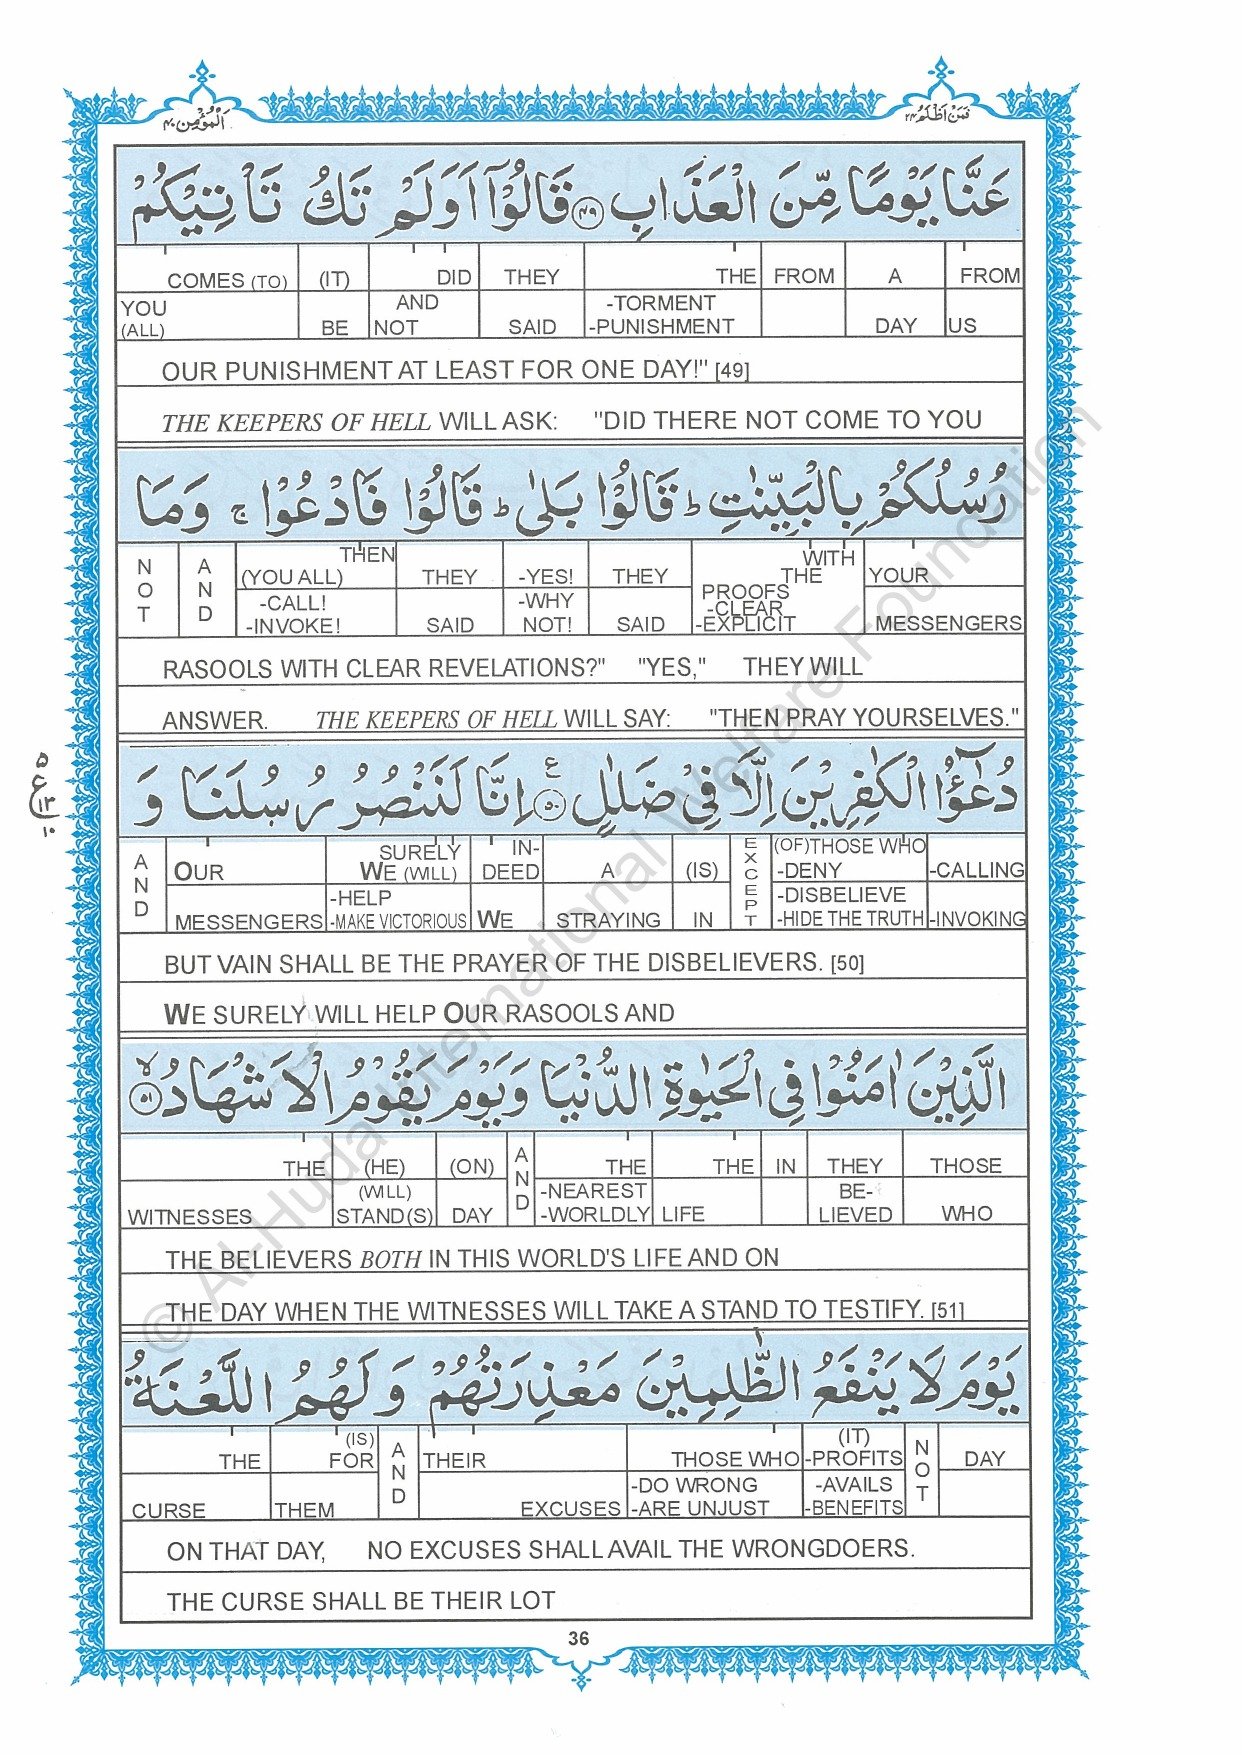 اَلْمُؤْمِن ٤٠
فَمَنْ اَظْلَمُ ٢٤
عَنَّا يَوْمًا مِّنَ الْعَذَابِ ﴿٤٩﴾ قَالُوْٓا اَوَلَمْ تَكُ تَاْتِيْكُمْ
COMES (TO) (IT) DID THEY THE FROM A FROM
YOU (ALL) BE AND NOT SAID -TORMENT -PUNISHMENT DAY US
OUR PUNISHMENT AT LEAST FOR ONE DAY!" [49]
THE KEEPERS OF HELL WILL ASK: "DID THERE NOT COME TO YOU
رُسُلُكُمْ بِالْبَيِّنٰتِ ؕ قَالُوْا بَلٰى ؕ قَالُوْا فَادْعُوْا ۚ وَمَا
NOT AND THEN (YOU ALL) THEY -YES! THEY WITH THE YOUR
-CALL! -INVOKE! SAID -WHY NOT! SAID PROOFS -CLEAR -EXPLICIT MESSENGERS
RASOOLS WITH CLEAR REVELATIONS?" "YES," THEY WILL
ANSWER. THE KEEPERS OF HELL WILL SAY: "THEN PRAY YOURSELVES."
دُعٰٓؤُا الْكٰفِرِيْنَ اِلَّا فِيْ ضَلٰلٍ ﴿٥٠﴾ ع اِنَّا لَنَنْصُرُ رُسُلَنَا وَ
٥
ع ١٣
١٠
AND OUR SURELY WE (WILL) IN- DEED A (IS) EXCEPT (OF)THOSE WHO -DENY -CALLING
MESSENGERS -HELP -MAKE VICTORIOUS WE STRAYING IN -DISBELIEVE -HIDE THE TRUTH -INVOKING
BUT VAIN SHALL BE THE PRAYER OF THE DISBELIEVERS. [50]
WE SURELY WILL HELP OUR RASOOLS AND
الَّذِيْنَ اٰمَنُوْا فِي الْحَيٰوةِ الدُّنْيَا وَيَوْمَ يَقُوْمُ الْاَشْهَادُ ﴿٥١﴾ ۙ
THE (HE) (ON) AND THE THE IN THEY THOSE
WITNESSES (WILL) STAND(S) DAY -NEAREST -WORLDLY LIFE BE- LIEVED WHO
THE BELIEVERS BOTH IN THIS WORLD'S LIFE AND ON
THE DAY WHEN THE WITNESSES WILL TAKE A STAND TO TESTIFY. [51]
يَوْمَ لَا يَنْفَعُ الظّٰلِمِيْنَ مَعْذِرَتُهُمْ وَلَهُمُ اللَّعْنَةُ
THE (IS) FOR AND THEIR THOSE WHO (IT) -PROFITS NOT DAY
CURSE THEM EXCUSES -DO WRONG -ARE UNJUST -AVAILS -BENEFITS
ON THAT DAY, NO EXCUSES SHALL AVAIL THE WRONGDOERS.
THE CURSE SHALL BE THEIR LOT
36
© Al-Huda International Welfare Foundation